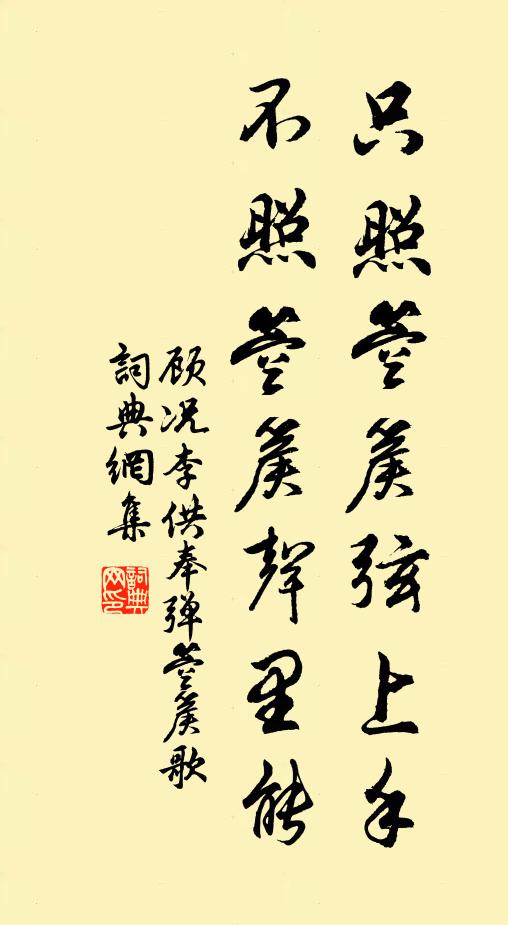 只照箜篌弦上手
不照箜篌聲里能
顾况李供奉弹箜篌歌
詞典網集
詞典網印